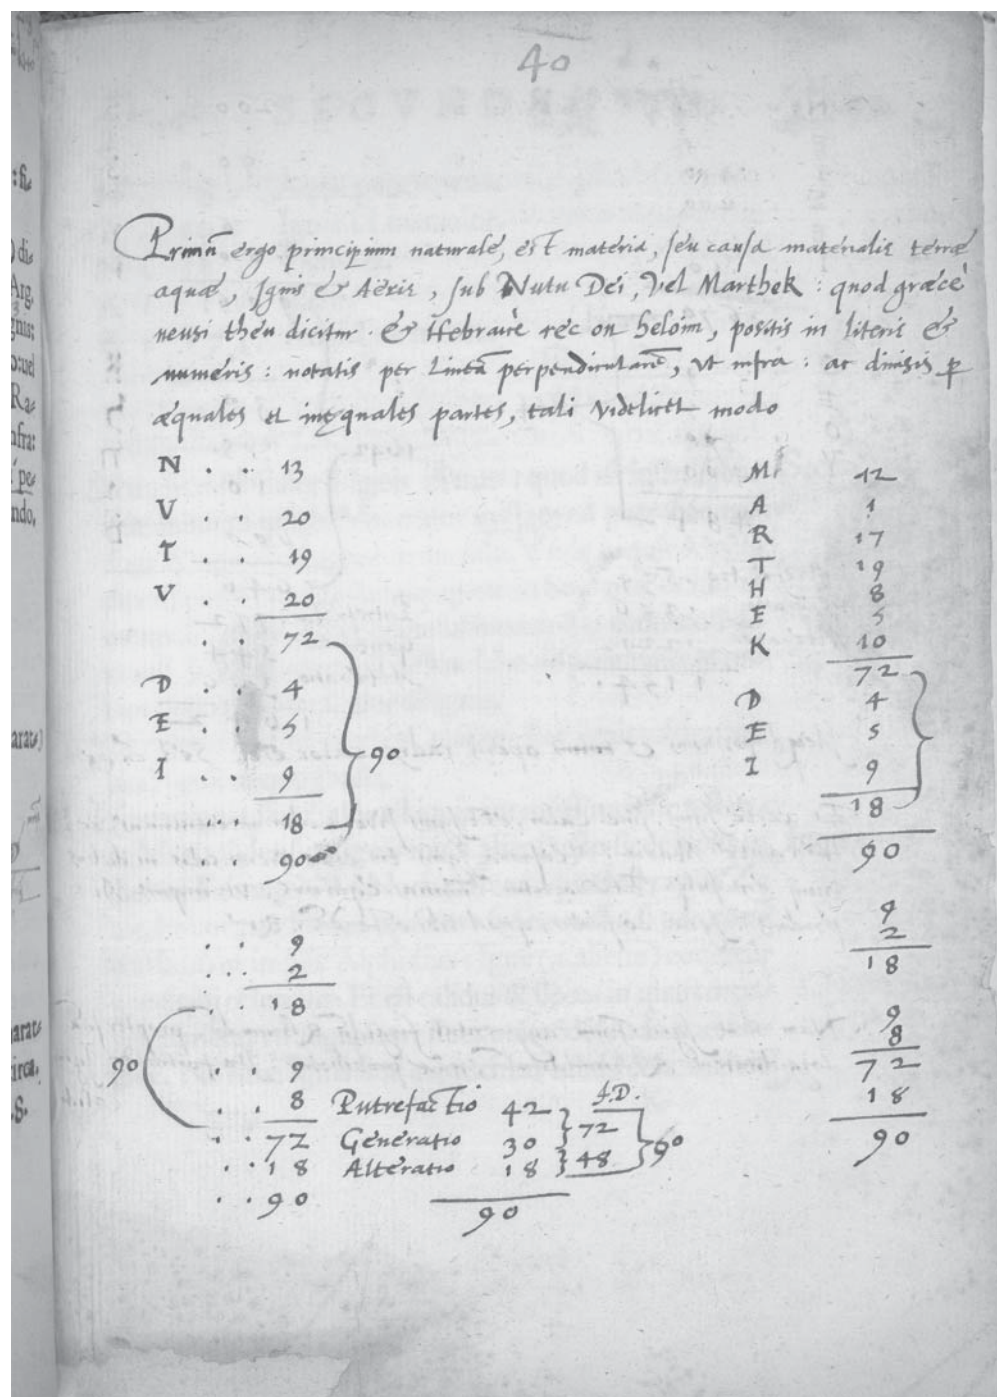 40
Primũ ergo principium naturale, est materia, seu causa materialis terræ
aquæ, Ignis & Aëris, sub Nutu Dei, Vel Marthek : quod græcè
neusi theu dicitur & Hebraicè rec on heloim, positis in literis &
numeris : notatis per Lineã perpendicularẽ, Vt infra : ac diuisis ꝑ
æquales et inęquales partes, tali Videlicet modo
N . . 13
V . . 20
T . . 19
V . . 20
. . 72
D . . 4
E . . 5
I . . 9
. . 18
. . 90
90
. . 9
. . . 2
. . 18
90
. . 9
. . 8 Putrefactio 42
. . 72 Generatio 30
. . 18 Alteratio 18
. . 90
90
72
48
90
M 12
A 1
R 17
T 19
H 8
E 5
K 10
72
D 4
E 5
I 9
18
90
9
2
18
9
8
72
18
90